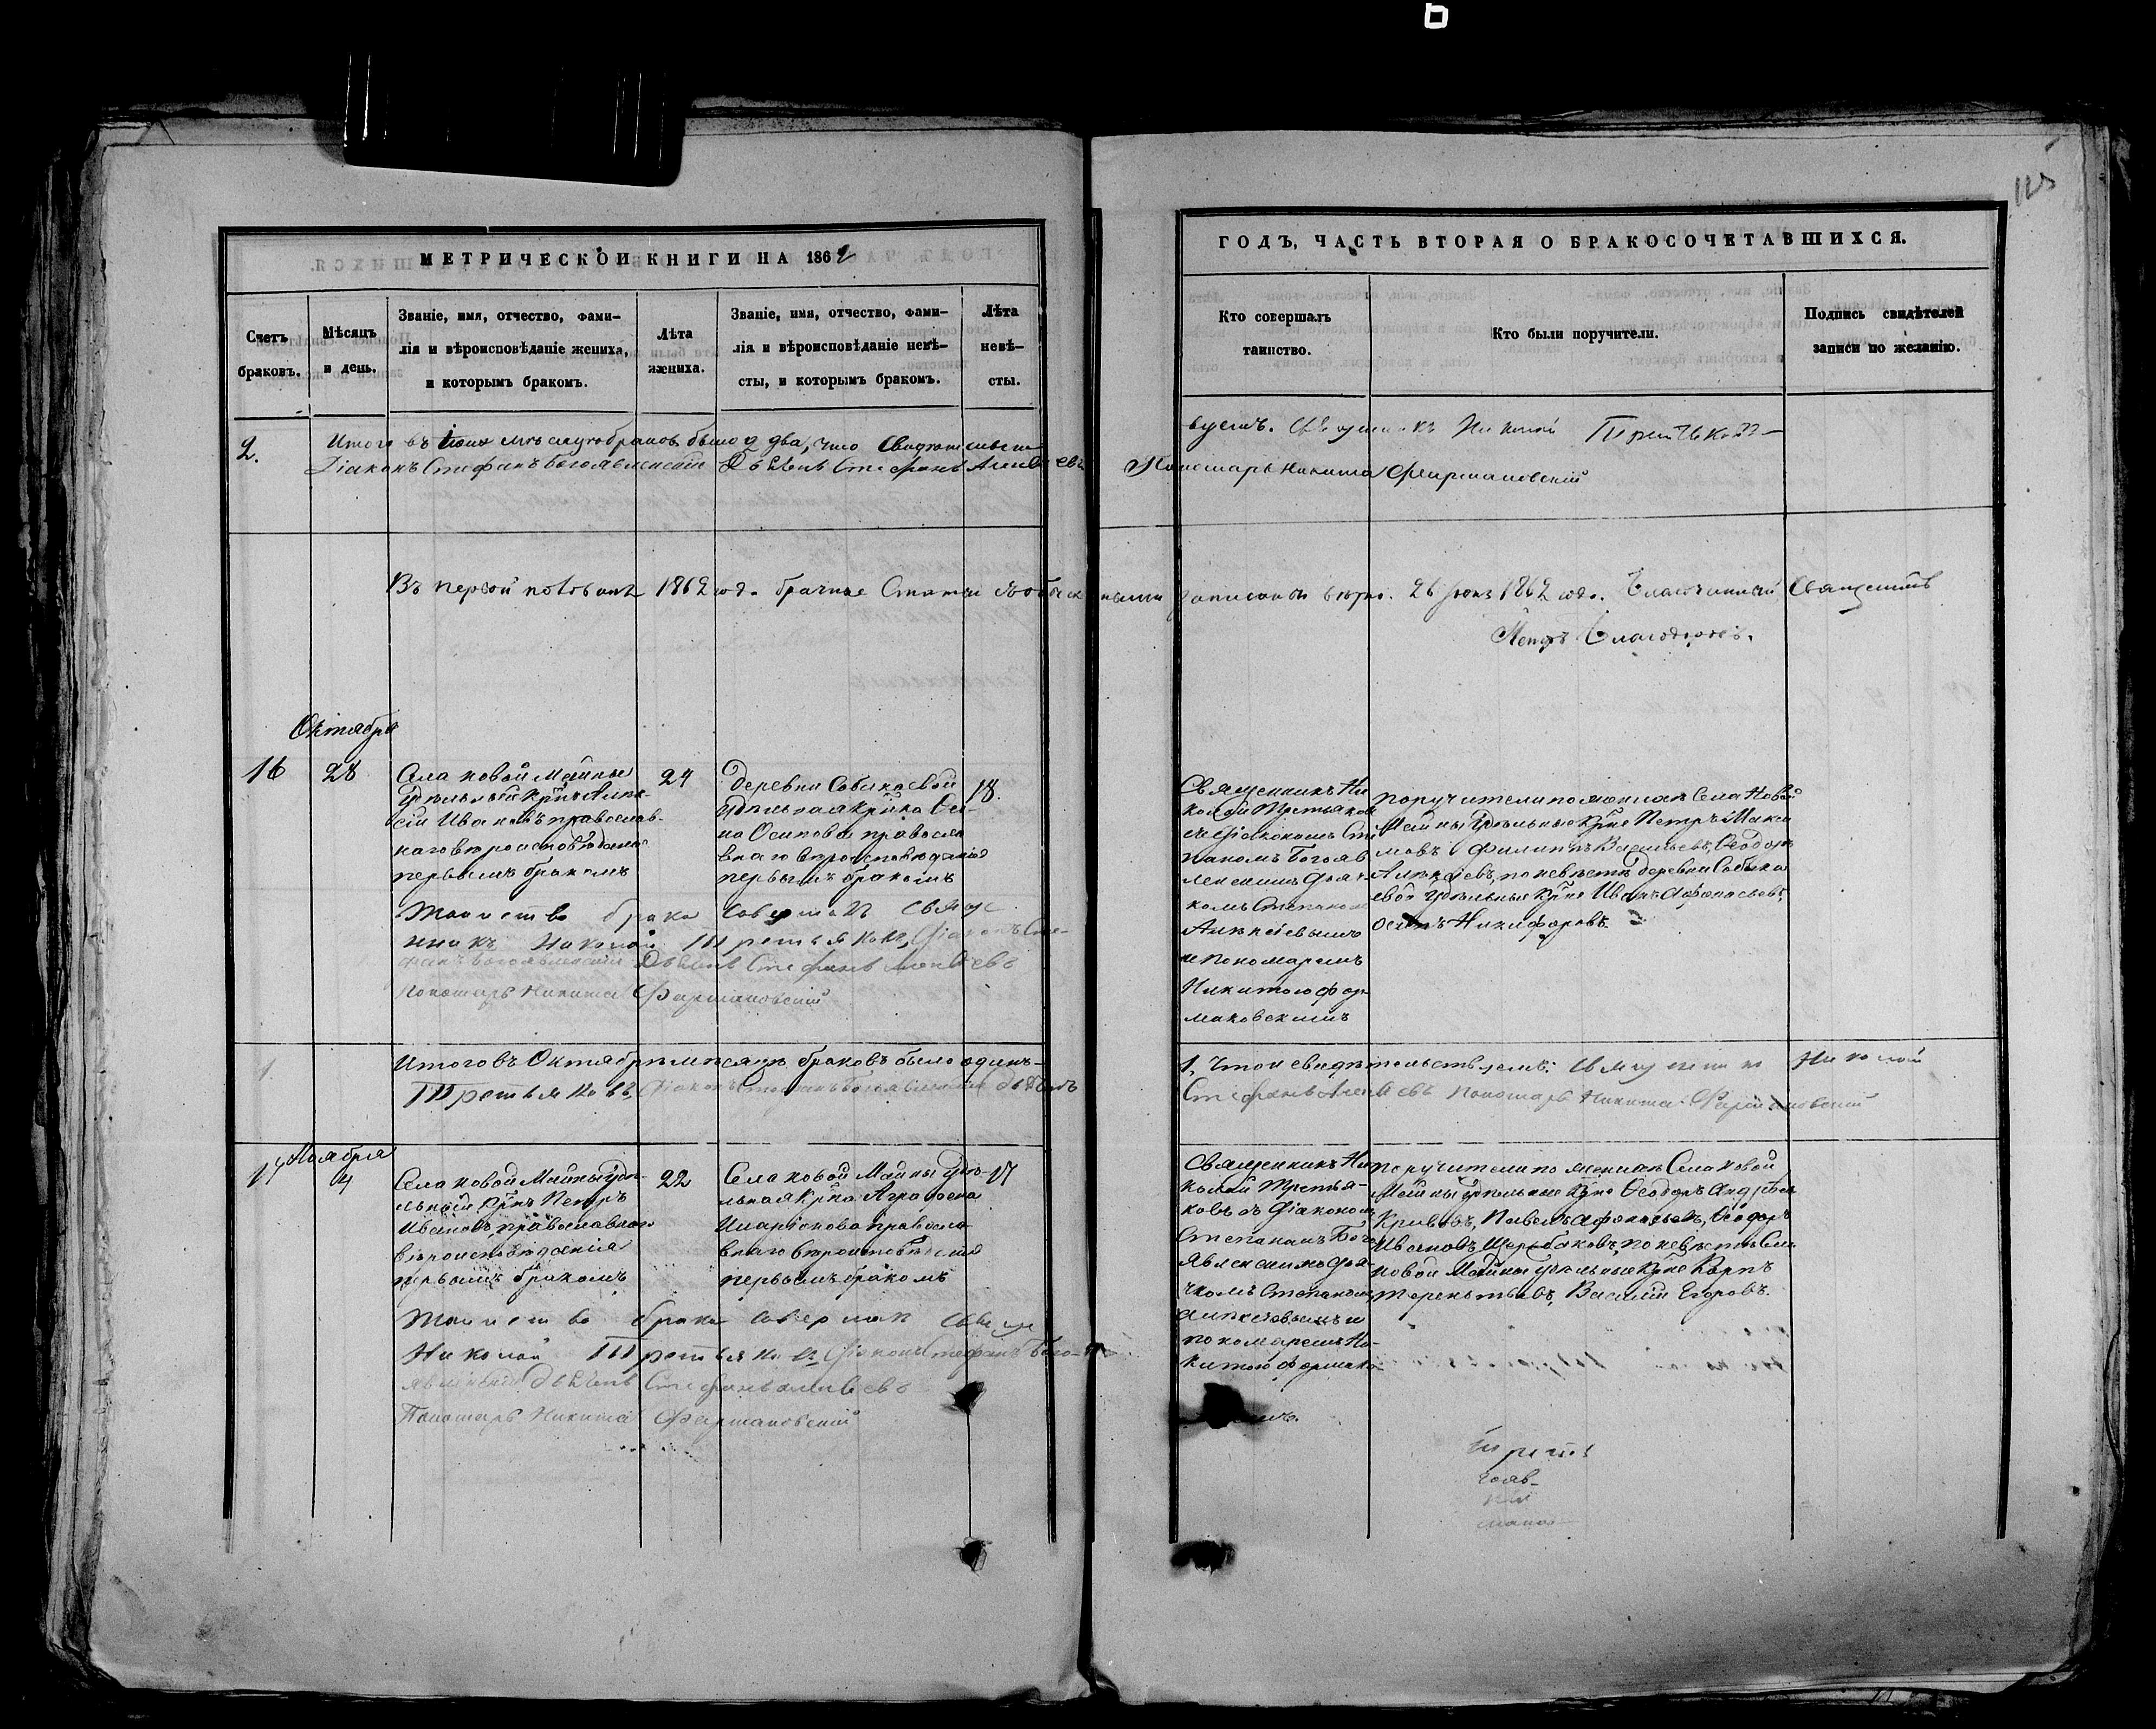 125
МЕТРИЧЕСКОЙ КНИГИ НА 1862
ГОДЪ, ЧАСТЬ ВТОРАЯ О БРАКОСОЧЕТАВШИХСЯ.
Счетъ браковъ.
Мѣсяцъ и день.
Званіе, имя, отчество, фами-
лія и вѣроисповѣданіе жениха,
и которымъ бракомъ.
Лѣта
жениха.
Званіе, имя, отчество, фами-
лія и вѣроисповѣданіе невѣ-
сты, и которымъ бракомъ.
Лѣта
невѣ-
сты.
Кто совершалъ
таинство.
Кто были поручители.
Подпись свидѣтелей
записи по желанію.
2.
Итого въ мѣсяцѣ браковъ было 2 два, что свидѣтельст-
вуемъ. Священникъ Николай Третьяковъ
Діаконъ Стефанъ Богоявленскій Дьячекъ Стефанъ Алексѣевъ
Пономарь Никита Фармаковскій
Въ первой половинѣ 1862 года брачные статьи
записаны вѣрно. 26 1862 года. Благочинный Священникъ
Петръ
Октября
16
28
Села Новой Майны
Удѣльный Крнъ Алек-
сѣй Ивановъ православ-
наго вѣроисповѣданія
первымъ бракомъ
24
Деревни Собакаевой
Удѣльная Крнка
на Осипова правосла
внаго вѣроисповѣданія
первымъ бракомъ
18.
Священникъ Ни
колай Третьяковъ
съ Діакономъ Сте
паномъ Богояв
ленскимъ Дьяч-
комъ Степаном
Алексѣевымъ
и Пономаремъ
Никитою Фар-
маковскимъ
Поручители по женихѣ Села Новой
Майны Удѣльные Крне Петръ Макси
мовъ Филиппъ Васильевъ, Ѳеодоръ
Алексѣевъ, по невѣстѣ деревни Собака
евой Удѣльные Крне Иванъ Афанасьевъ,
Осипъ Никифоровъ.
Таинство брака совершалъ Свяще
нникъ Николай Третьяковъ, Діаконъ Сте-
фанъ Богоявленскій Дьячекъ Стефанъ Алексѣевъ
Пономарь Никита Фармаковскій
1.
Итого въ Октябрѣ мѣсяцѣ браковъ было одинъ-
1, Что и свидѣтельствуемъ: Священникъ Николай
Третьяковъ, Діаконъ Стефанъ Богоявленскій Дьячекъ
Стефанъ Алексѣевъ Пономарь Никита Фармаковскій
Ноября
17
4
Села Новой Майны Удѣ-
льный Крнъ Петръ
Ивановъ, православнаго
вѣроисповѣданія
первымъ бракомъ
22
Села Новой Майны Удѣ-
льная Крнка Аграфена
Иларіонова правосла
внаго вѣроисповѣданія
первымъ бракомъ
17
Священникъ Ни
колай Третья-
ковъ съ Діакономъ
Степаномъ Бого
явленскимъ Дья-
чкомъ Степаномъ
Алексѣевымъ и
пономаремъ Ни-
китою Фармако-
Поручители по женихѣ Села Новой
Майны Удѣльные Крне Ѳеодоръ Андрѣевъ
Кривовъ, Павелъ Афанасьевъ, Ѳеодоръ
Ивановъ Щербаковъ, по невѣстѣ Села
Новой Майны Удѣльные Крне Карпъ
Терентьевъ, Василій Егоровъ.
Таинство брака совершалъ Свяще
Николай Третьяковъ Діаконъ Стефанъ Бого-
явленскій Дьячекъ Стефанъ Алексѣевъ
Пономарь Никита Фармаковскій